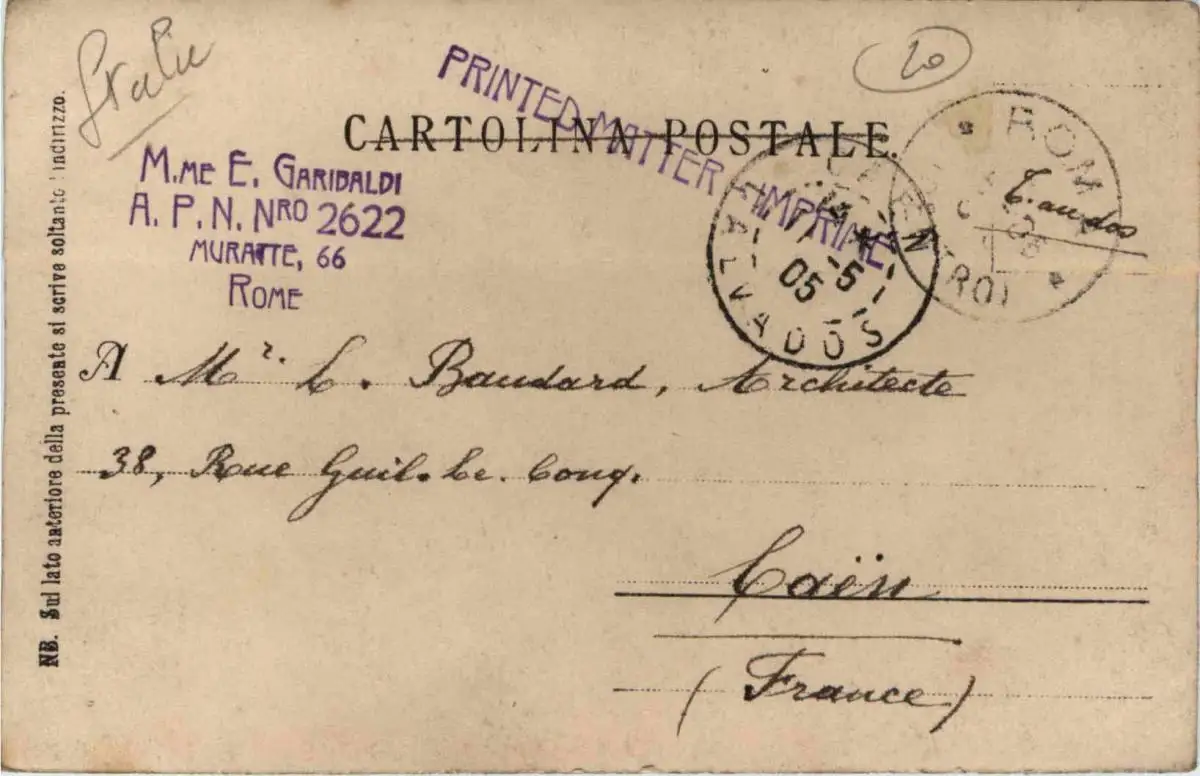 Italie
20
PRINTED MATTER - IMPRIMÉ
CARTOLINA POSTALE.
M.ME E. GARIBALDI
A. P. N. NRO 2622
MURATTE, 66
ROME
ROMA
(CENTRO)
CAEN
5
05
CALVADOS
A Mr. L. Baudard, Architecte
38, Rue Guil. Le. Conq.
Caën
(France)
NB. Sul lato anteriore della presente si scrive soltanto l'indirizzo.